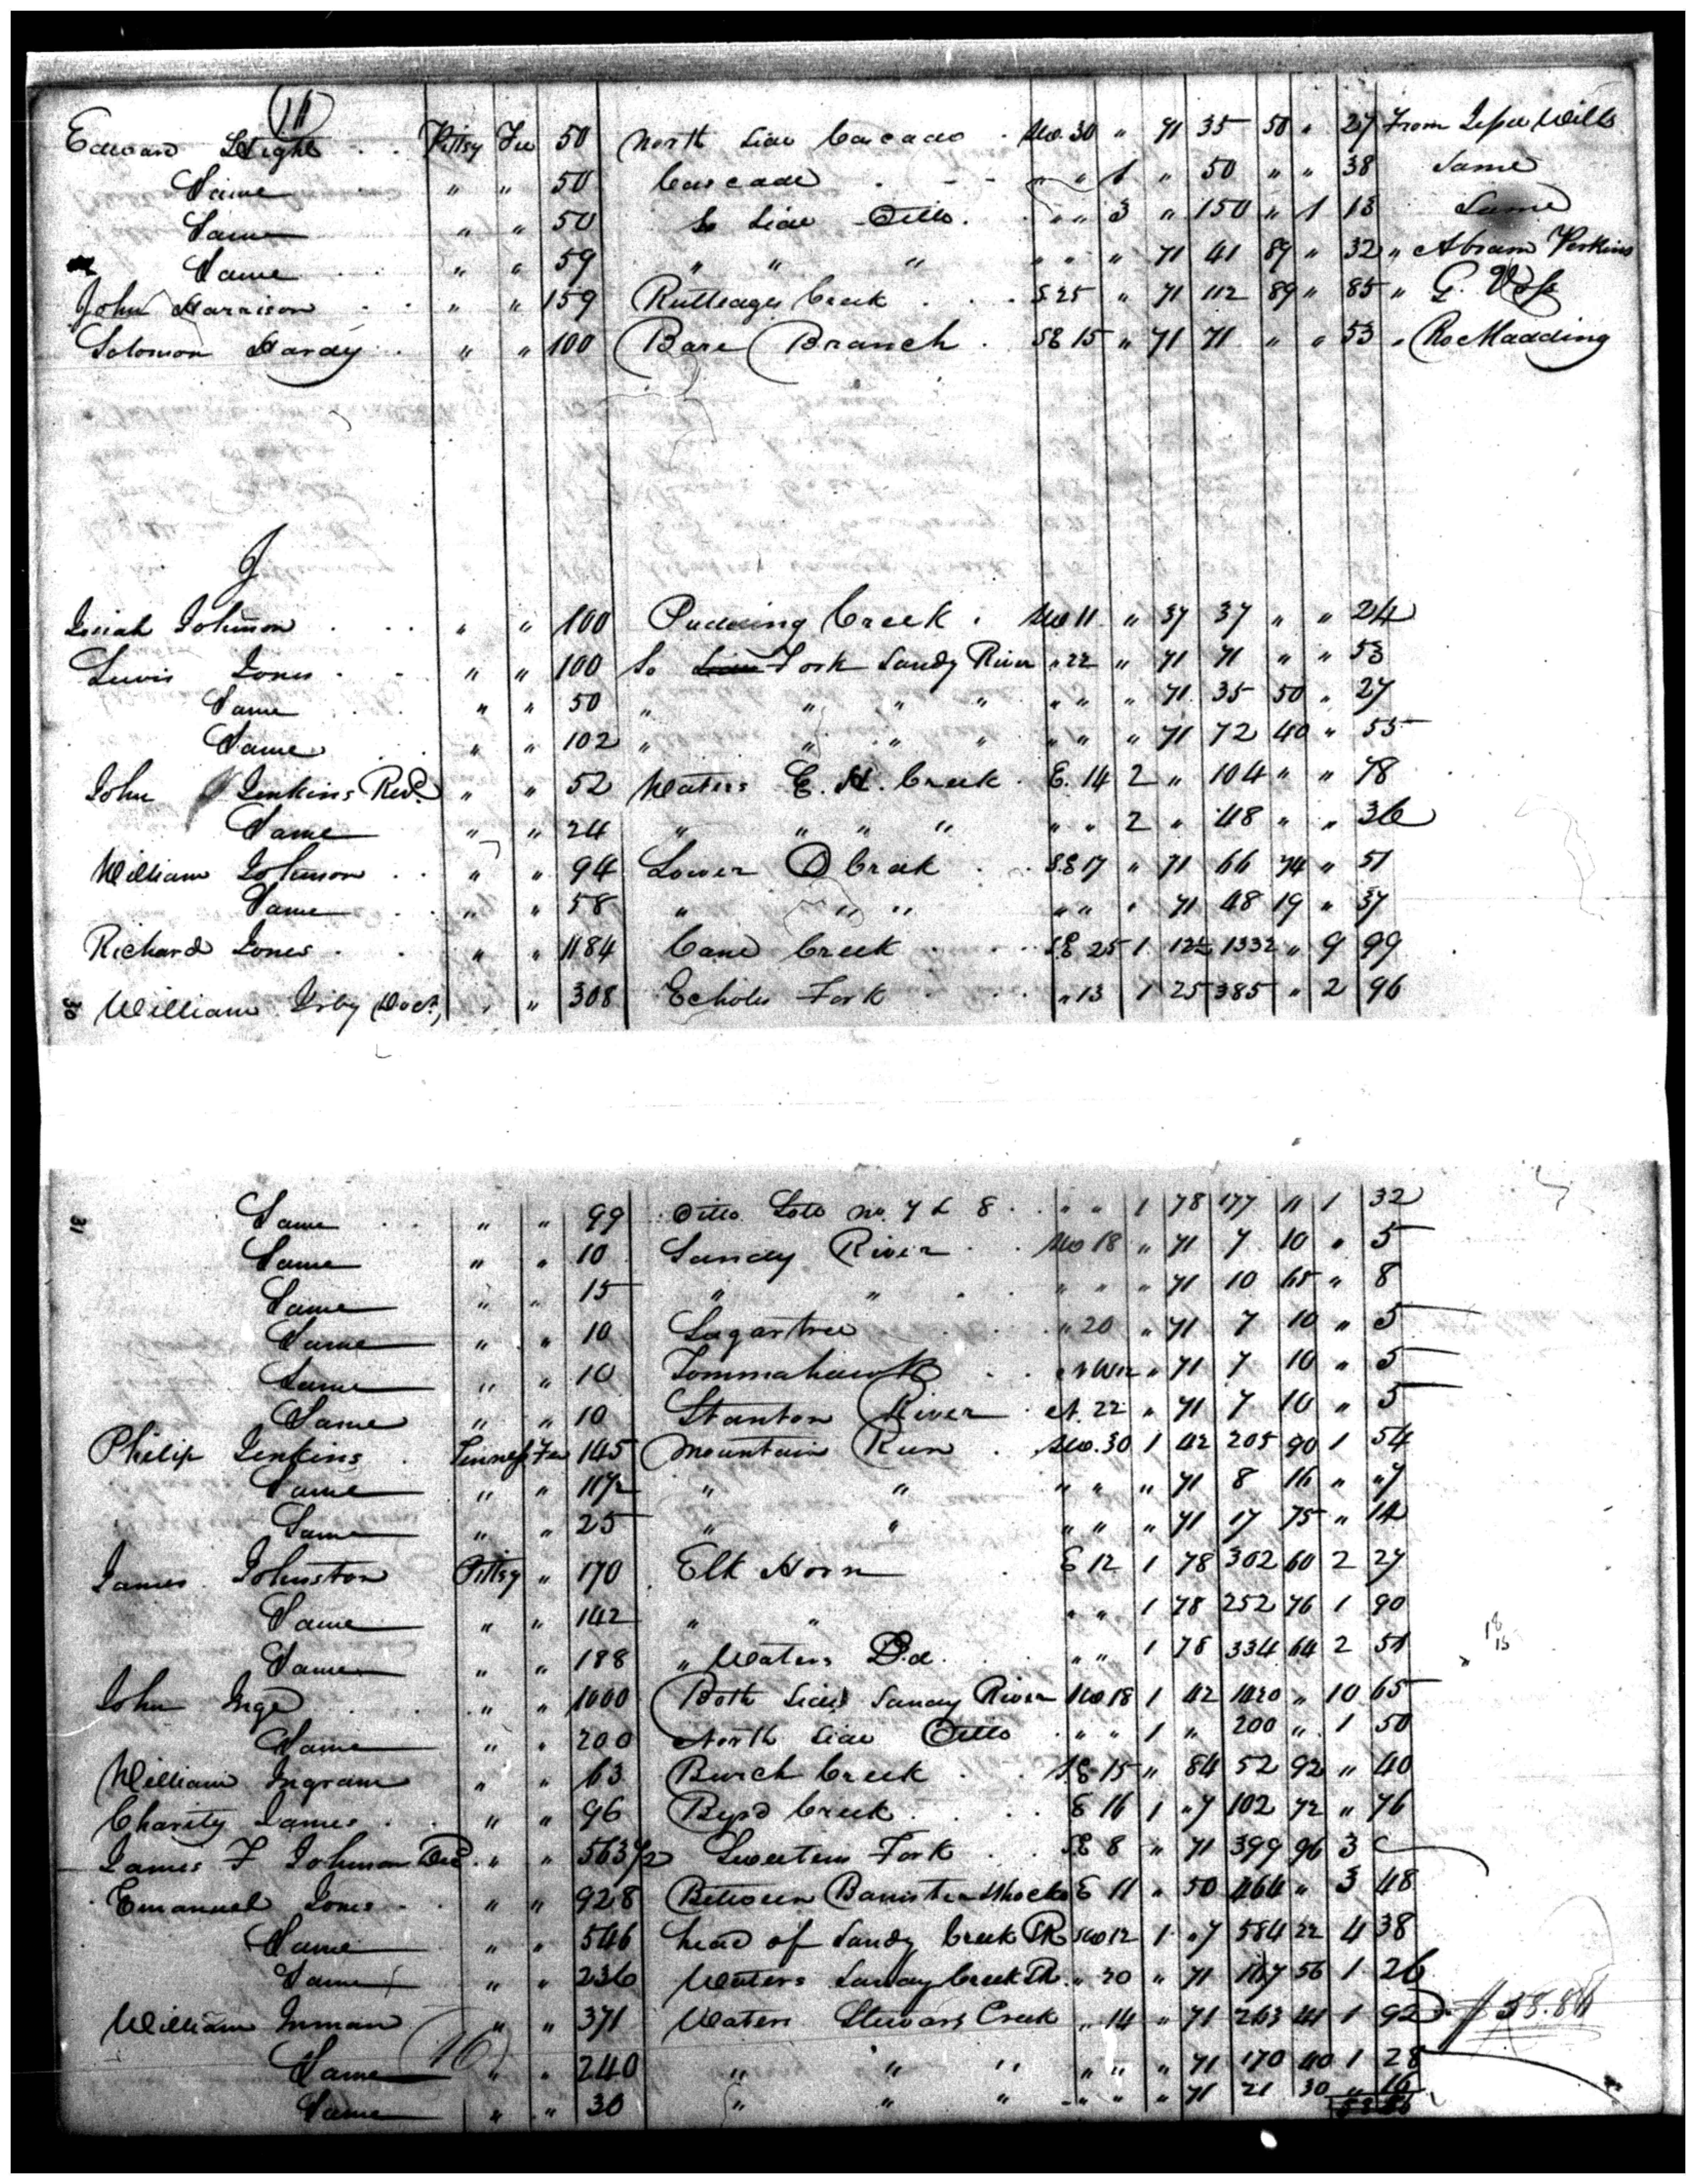 Edward Hight . . Pittsy Fee 50 North Side Cascade . SW. 30 " 71 35 50 " 27 From Jesse Wills
Same " " 50 Cascade . - - " " 1 " 50 " " 38 Same
Same " " 50 So Side Ditto. " " 3 " 150 " 1 13 Same
Same " " 59 " " " " " " 71 41 89 " 32 " Abram Perkins
John Harrison . . " " 159 Rutledges Creek . . . S 25 " 71 112 89 " 85 " G. Voss
Solomon Hardy . " " 100 Bare Branch . SE 15 " 71 71 " " 53 " Ro Madding
J
Isiah Johnson . . . " " 100 Pudding Creek . SW 11 " 37 37 " " 24
Lewis Jones . . " " 100 So Side Fork Sandy River " 22 " 71 71 " " 53
Same " " 50 " " " " " " " 71 35 50 " 27
Same " " 102 " " " " " " " 71 72 40 " 55
John Jenkins Revd. " " 52 Waters E. H. Creek . E. 14 2 " 104 " " 78
Same " " 24 " " " " " " 2 " 48 " " 36
William Johnson . . " " 94 Lower D Creek . . SE 17 " 71 66 74 " 51
Same . . " " 58 " " " " " " 71 48 19 " 37
Richard Jones . . " " 1184 Cane Creek . . . SE 25 1 12½ 1332 " 9 99
30 William Irby (Doct.) " " 308 Echols Fork . . . " 13 1 25 385 " 2 96
31 Same . . " " 99 Ditto Lots No. 7 & 8 . . " " 1 78 177 11 1 32
Same " " 10 Sandy River . . SW 18 " 71 7 10 " 5
Same " " 15 " " . . " " " 71 10 65 " 8
Same " " 10 Sugartree . . . " 20 " 71 7 10 " 5
Same " " 10 Tommahawk . . NW 12 " 71 7 10 " 5
Same " " 10 Stanton River . N. 22 " 71 7 10 " 5
Philip Jenkins . Tenness Fee 145 Mountain Run . SW. 30 1 42 205 90 1 54
Same " " 11½ " " " " " 71 8 16 " "7
Same " " 25 " " " " " 71 17 75 " 14
James Johnston Pittsy " 170 Elk Horn . E 12 1 78 302 60 2 27
Same " " 142 " " " " 1 78 252 76 1 90
Same " " 188 " Waters Do. . . " " 1 78 334 64 2 51
John Inge . . " " 1000 Both Sides Sandy River SW 18 1 42 1420 " 10 65
Same " " 200 North Side Ditto " " 1 " 200 " 1 50
William Ingram " " 63 Burch Creek . . SE 15 " 84 52 92 " 40
Charity James . . " " 96 Byrd Creek . . . E 16 1 "7 102 72 " 76
James F Johnson Decd. " " 563½ Sweetem Fork . . SE 8 " 71 399 96 3
Emanuel Jones . . " " 928 Between Banister & Shocko E 11 " 50 464 " 3 48
Same " " 546 head of Sandy Creek SR SW 12 1 "7 584 22 4 38
Same " " 236 Waters Sandy Creek SR. " 20 " 71 167 56 1 26
William Inman " " 371 Waters Stewars Creek " 14 " 71 263 41 1 92
Same (16) " " 240 " " " " " " 71 170 40 1 28
Same " " 30 " " " " " " 71 21 30 " 16